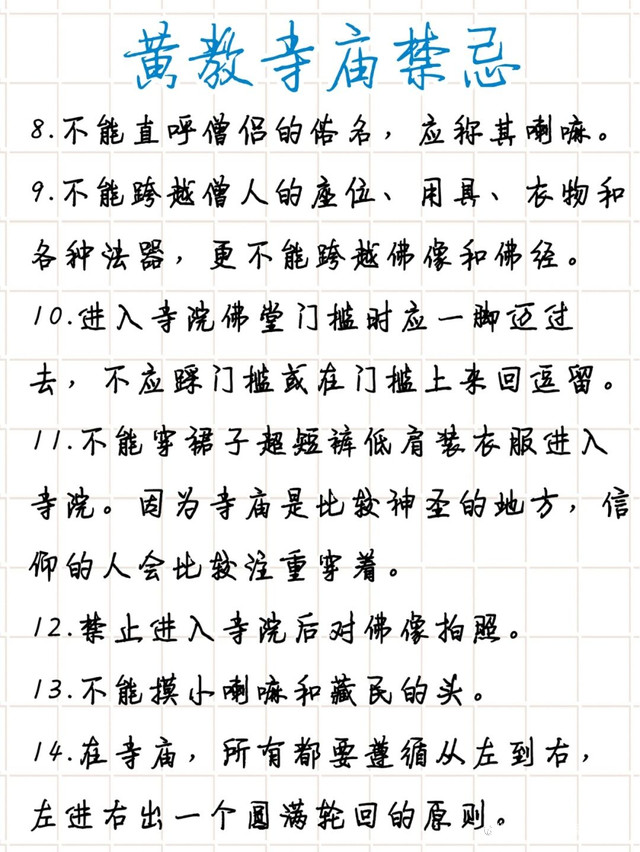 黄教寺庙禁忌
8.不能直呼僧侣的俗名，应称其喇嘛。
9.不能跨越僧人的座位、用具、衣物和
各种法器，更不能跨越佛像和佛经。
10.进入寺院佛堂门槛时应一脚迈过
去，不应踩门槛或在门槛上来回逗留。
11.不能穿裙子超短裤低肩装衣服进入
寺院。因为寺庙是比较神圣的地方，信
仰的人会比较注重穿着。
12.禁止进入寺院后对佛像拍照。
13.不能摸小喇嘛和藏民的头。
14.在寺庙，所有都要遵循从左到右，
左进右出一个圆满轮回的原则。